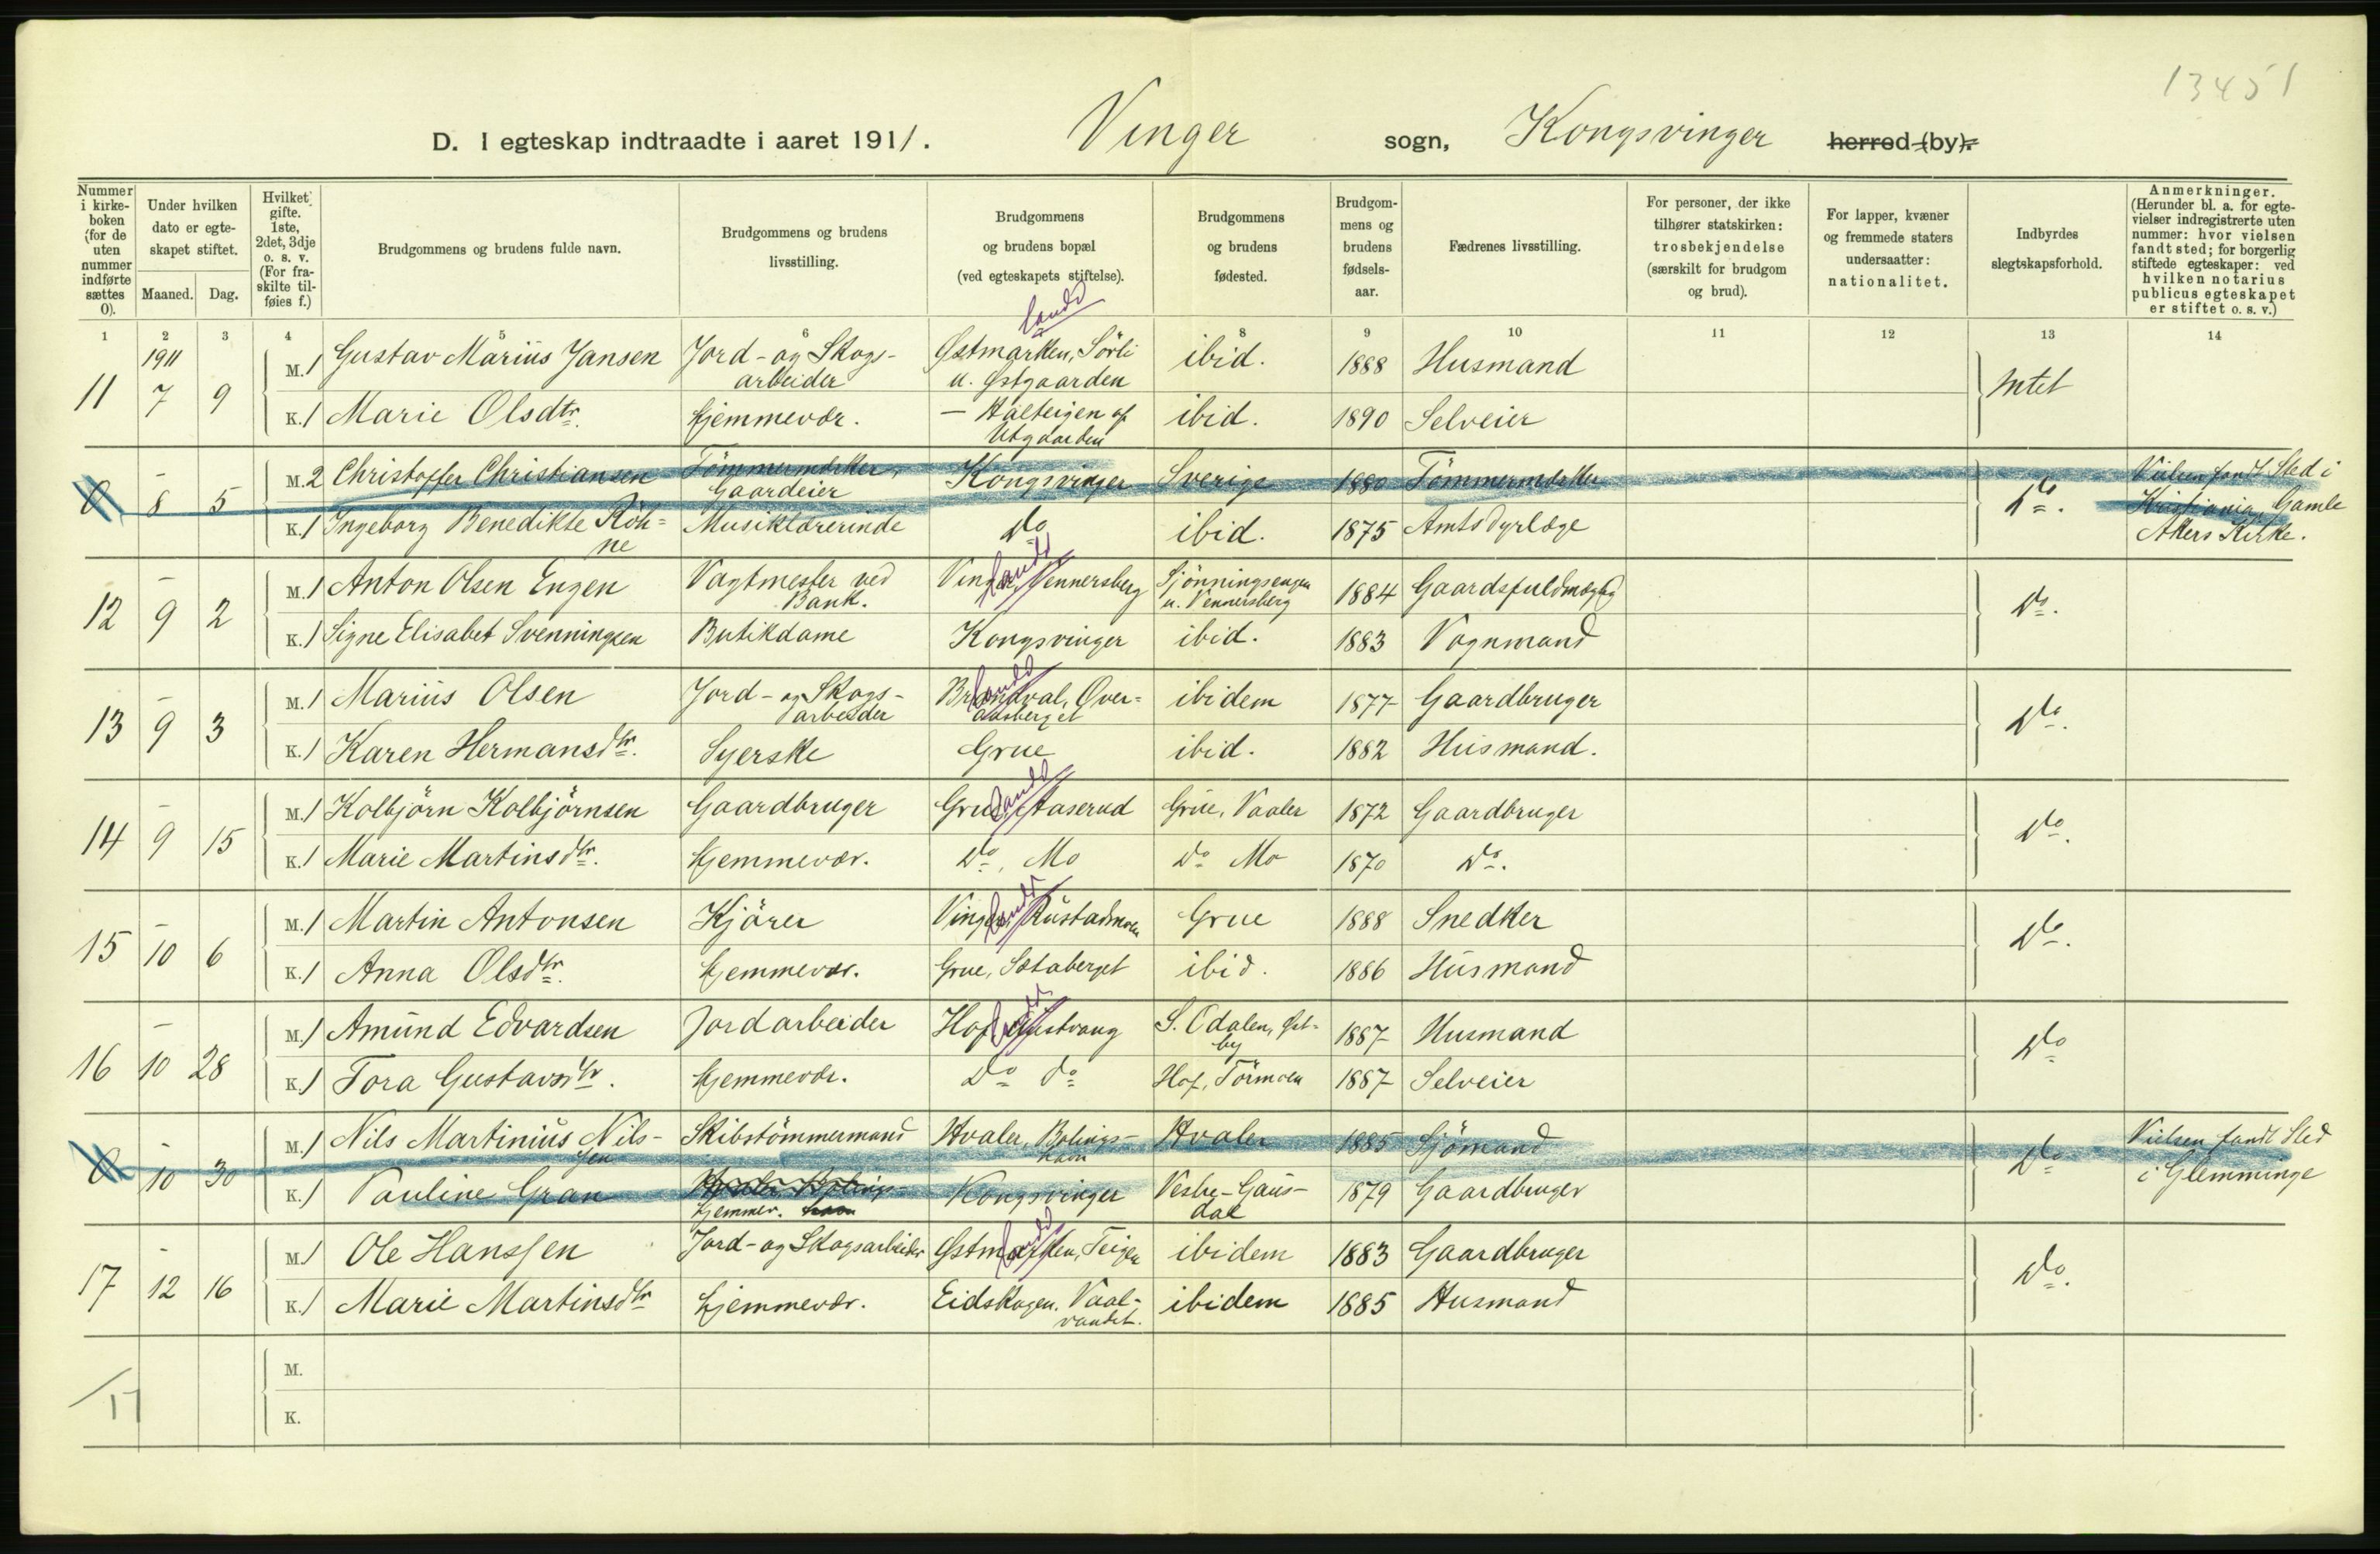 13451
D. I egteskap indtraadte i aaret 1911. Vinger sogn, Kongsvinger herred (by).
Nummer i kirkeboken (for de uten nummer indførte sættes 0).
Under hvilken dato er egteskapet stiftet.
Maaned. Dag.
Hvilket gifte. 1ste, 2det, 3dje o. s. v. (For fraskilte tilføies f.)
Brudgommens og brudens fulde navn.
Brudgommens og brudens livsstilling.
Brudgommens og brudens bopæl (ved egteskapets stiftelse).
Brudgommens og brudens fødested.
Brudgommens og brudens fødselsaar.
Fædrenes livsstilling.
For personer, der ikke tilhører statskirken: trosbekjendelse (særskilt for brudgom og brud).
For lapper, kvæner og fremmede staters undersaatter: nationalitet.
Indbyrdes slegtskapsforhold.
Anmerkninger. (Herunder bl. a. for egtevielser indregistrerte uten nummer: hvor vielsen fandt sted; for borgerlig stiftede egteskaper: ved hvilken notarius publicus egteskapet er stiftet o. s. v.)
1 2 3 4 5 6 8 9 10 11 12 13 14
1911
11 7 9 M. 1 Gustav Marius Jansen Jord- og Skogsarbeider Østmarken, Sörli u. Østgaarden land ibid. 1888 Husmand Intet
K. 1 Marie Olsdtr. Hjemmevær. — ibid. 1890 Selveier
0 - 8 5 M. 2 Christoffer Christiansen Tömmermærker, Gaardeier Kongsvinger Sverige 1880 Tömmermærker Do. Vielsen fandt Sted i Kristiania, Gamle Akers Kirke.
K. 1 Ingeborg Benedikte Röhne Musiklærerinde Do ibid. 1875 Amtsdyrlæge
12 - 9 2 M. 1 Anton Olsen Engen Vagtmester ved Bank. Vinger, Vennersberg land Sjönningsengen u. Vennersberg 1884 Gaardsfuldmægtig Do.
K. 1 Signe Elisabet Svenningsen Butikdame Kongsvinger ibid. 1883 Vognmand
13 - 9 3 M. 1 Marius Olsen Jord- og Skogsarbeider Brandval, Overaasberget land ibidem 1877 Gaardbruger Do.
K. 1 Karen Hermansdtr. Syerske Grue ibid. 1882 Husmand.
14 - 9 15 M. 1 Kolbjörn Kolbjörnsen Gaardbruger Grue, Aaserud land Grue, Vaaler 1872 Gaardbruger Do.
K. 1 Marie Martinsdtr. Hjemmevær. Do, Mo Do Mo 1870 Do.
15 - 10 6 M. 1 Martin Antonsen Kjörer Vinger, Rustadmoen land Grue 1888 Snedker Do.
K. 1 Anna Olsdtr. Hjemmevær. Grue, Sætaberget ibid. 1886 Husmand
16 - 10 28 M. 1 Amund Edvardsen Jordarbeider Hof land S. Odalen, Østby 1887 Husmand Do
K. 1 Tora Gustavsdtr. Hjemmevær. Do do Hof, Törmoen 1887 Selveier
0 - 10 30 M. 1 Nils Martinius Nilssen Skibstömmermand Hvaler, Bölingshavn Hvaler 1885 Sjömand Do Vielsen fandt Sted i Glemminge
K. 1 Pauline Gran Hjemmev. Kongsvinger Vestre-Gausdal 1879 Gaardbruger
17 - 12 16 M. 1 Ole Hanssen Jord- og Skogsarbeider Østmarken, Teigen land ibidem 1883 Gaardbruger Do.
K. 1 Marie Martinsdtr Hjemmevær. Eidskogen. Vaalvandet. ibidem 1885 Husmand
17 M.
K.